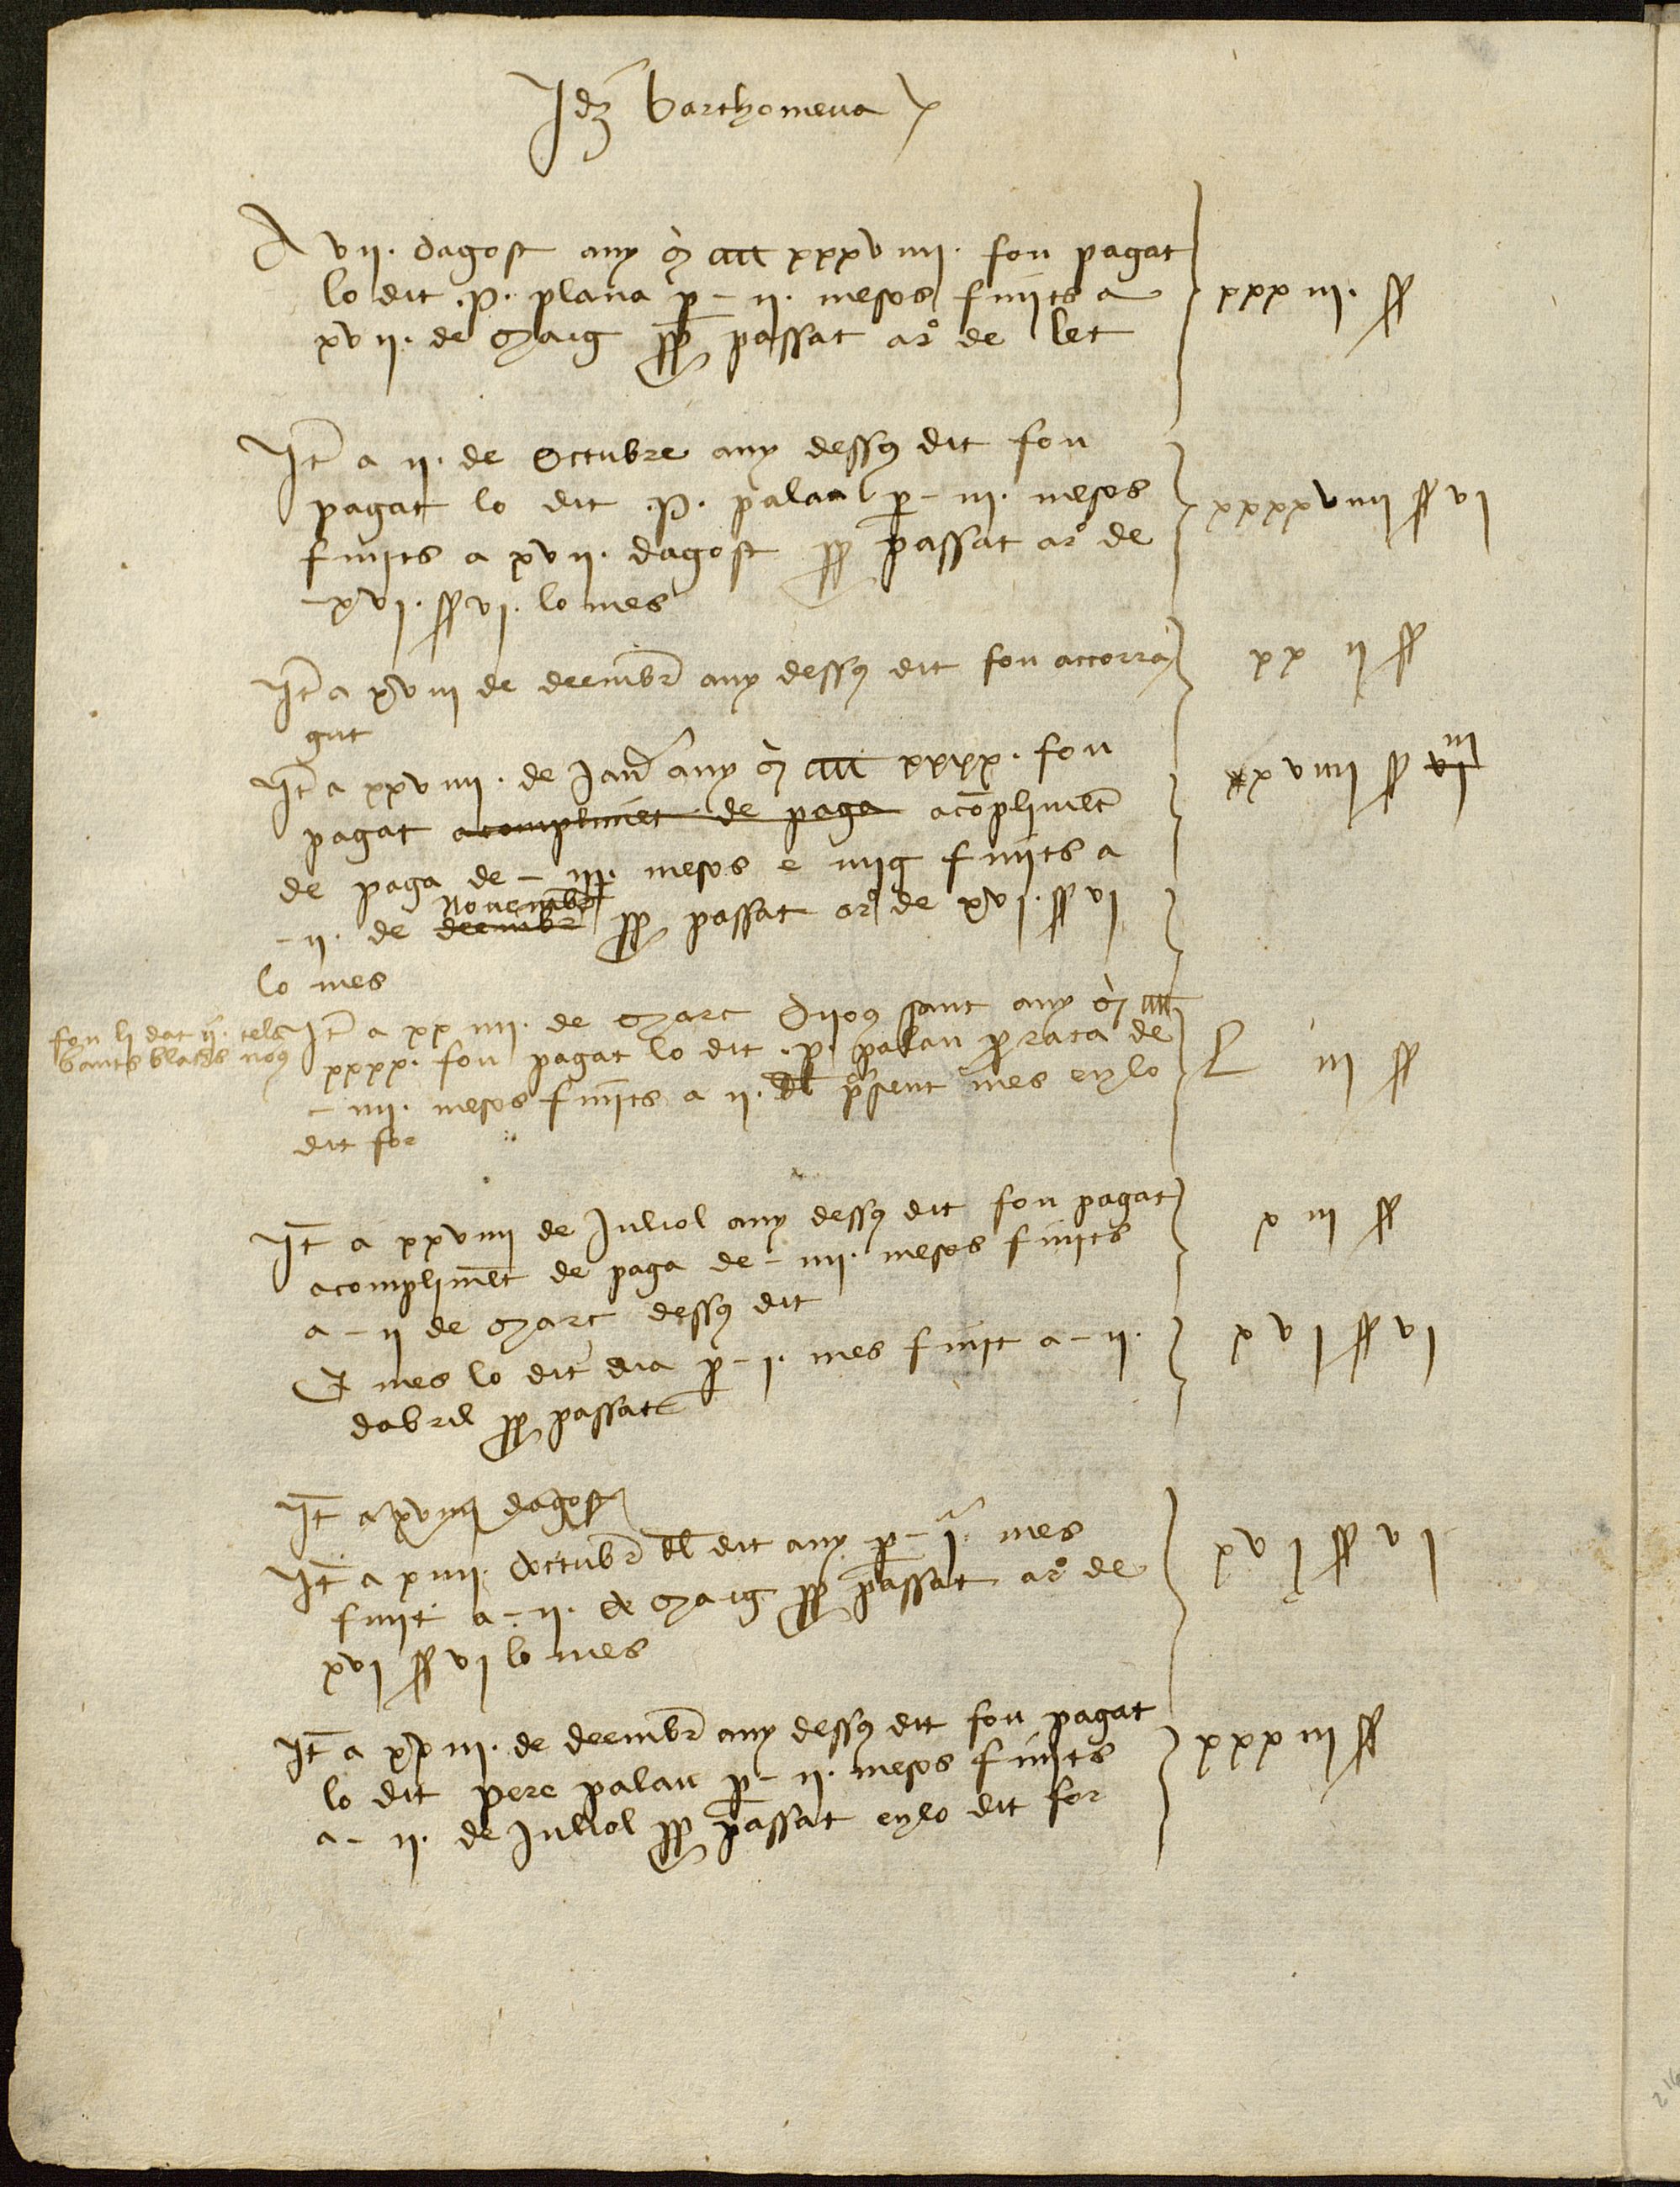 Jdz barthomeua
A vij. dagost any M cccc xxxviiij. fon pagat
lo dit .P. plana p - ij. mesos finits a
xvij. de Maig pp passat a ro de let
xxx iij. ss
Jt a ij. de Octubre any dessq dit fon
pagat lo dit .P. palau p - iij. mesos
finits a xvij. dagost pp passat a ro de
- xvj. ss vj. lo mes
xxxxviiij ss vj
Jt a xviij de deembr any dessq dit fon accorra
gut
xx ij ss
Jt a xxviiij. de Janr any M cccc xxxx. fon
pagat acomplimet de paga acoplimet
de paga de - iij. mesos e mig finits a
- ij. de deembr nouembr pp passat a ro de xvj. ss vj
lo mes
xviiij ss vj iij
fon li dat ij. tels
bancs blachs nog
Jt a xxiiij. de Marc Dijog sant any M cccc
xxxx. fon pagat lo dit .p. palau p rata de
- iiij. mesos finits a ij. dl psent mes en lo
dit for
L iij ss
Jt a xxviiij de Juliol any dessq dit fon pagat
acomplimet de paga de - iiij. mesos finits
a - ij de Marc dessq dit
x iij ss
Et mes lo dit dia p - j. mes finit a - ij.
dabril pp passat
xvj ss vj
Jt a xviiij dagost
Jt a xiiij. doctubr dl dit any p - j. mes
finit a - ij. de Maig pp passat a ro de
xvj ss vj lo mes
xvj ss vj
Jt a xxiij. de deembr any dessq dit fon pagat
lo dit pere palau p - ij. mesos finits
a - ij. de Juliol pp passat en lo dit for
xxx iij ss